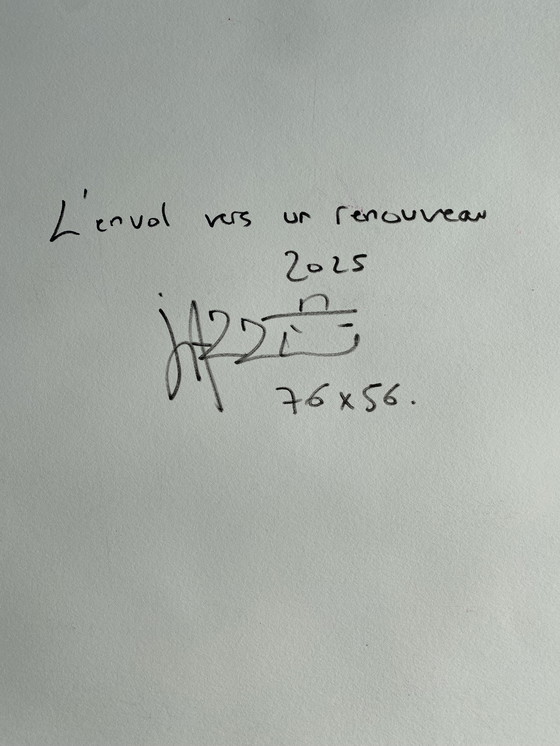 L'envol vers un renouveau
2025
76 x 56.